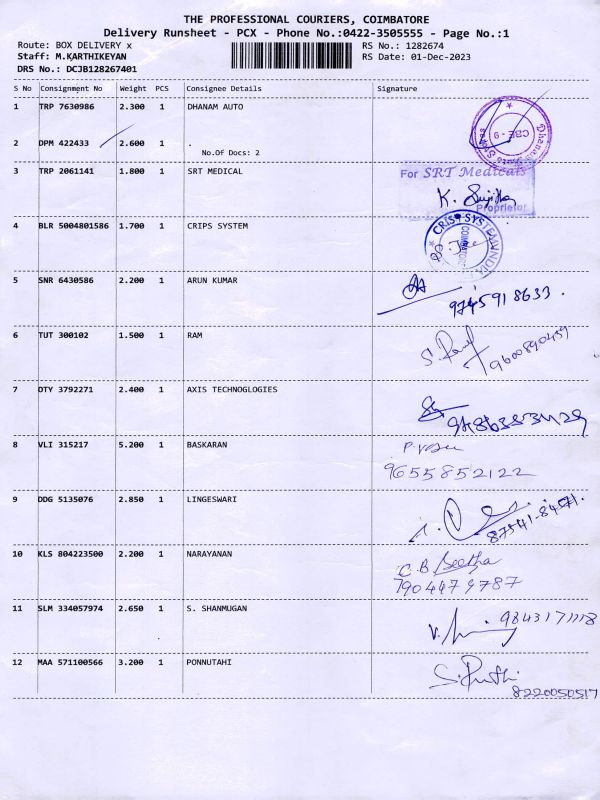 THE PROFESSIONAL COURIERS, COIMBATORE
Delivery Runsheet - PCX - Phone No.:0422-3505555 - Page No.:1
Route: BOX DELIVERY x
RS No.: 1282674
Staff: M.KARTHIKEYAN
RS Date: 01-Dec-2023
DRS No.: DCJB128267401
S No Consignment No Weight PCS Consignee Details Signature
1 TRP 7630986 2.300 1 DHANAM AUTO
CBE - 9
2 DPM 422433 2.600 1 .
No.Of Docs: 2
3 TRP 2061141 1.800 1 SRT MEDICAL
For SRT Medicals
K.
Proprietor
4 BLR 5004801586 1.700 1 CRIPS SYSTEM
5 SNR 6430586 2.200 1 ARUN KUMAR
9745918633.
6 TUT 300102 1.500 1 RAM
7 OTY 3792271 2.400 1 AXIS TECHNOGLOGIES
8 VLI 315217 5.200 1 BASKARAN
9655852122
9 DDG 5135076 2.850 1 LINGESWARI
87541-84571.
10 KLS 804223500 2.200 1 NARAYANAN
C.B Geetha
7904479787
11 SLM 334057974 2.650 1 S. SHANMUGAN
12 MAA 571100566 3.200 1 PONNUTAHI
8220050517